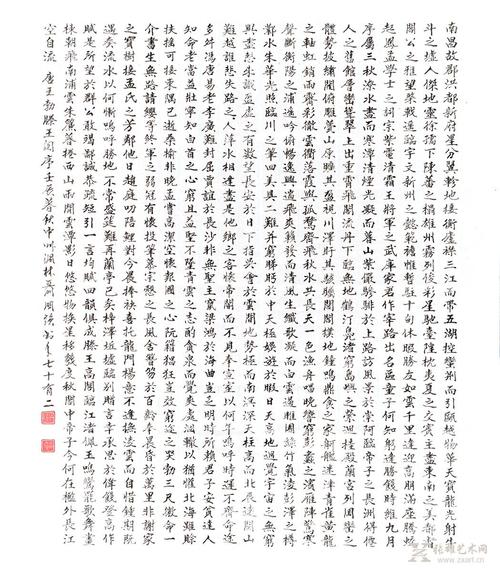 南昌故郡洪都新府星分翼軫地接衡廬襟三江而帶五湖控蠻荊而引甌越物華天寶龍光射牛
斗之墟人傑地靈徐孺下陳蕃之榻雄州霧列俊彩星馳臺隍枕夷夏之交賓主盡東南之美都督
閻公之雅望棨戟遙臨宇文新州之懿範襜帷暫駐十旬休暇勝友如雲千里逢迎高朋滿座騰蛟
起鳳孟學士之詞宗紫電清霜王將軍之武庫家君作宰路出名區童子何知躬逢勝餞時維九月
序屬三秋潦水盡而寒潭清煙光凝而暮山紫儼驂騑於上路訪風景於崇阿臨帝子之長洲得僊
人之舊館層巒聳翠上出重霄飛閣流丹下臨無地鶴汀鳧渚窮島嶼之縈迴桂殿蘭宮列岡巒之
體勢披繡闥俯雕甍山原曠其盈視川澤盱其駭矚閭閻撲地鐘鳴鼎食之家舸艦迷津青雀黃龍
之軸虹銷雨霽彩徹雲衢落霞與孤鶩齊飛秋水共長天一色漁舟唱晚響窮彭蠡之濱雁陣驚寒
聲斷衡陽之浦遙吟俯暢逸興遄飛爽籟發而清風生纖歌凝而白雲遏睢園綠竹氣凌彭澤之樽
鄴水朱華光照臨川之筆四美具二難并窮睇眄於中天極娛遊於暇日天高地迥覺宇宙之無窮
興盡悲來識盈虛之有數望長安於日下指吳會於雲間地勢極而南溟深天柱高而北辰遠關山
難越誰悲失路之人萍水相逢盡是他鄉之客懷帝閽而不見奉宣室以何年嗚呼時運不齊命途
多舛馮唐易老李廣難封屈賈誼於長沙非無聖主竄梁鴻於海曲豈乏明時所賴君子安貧達人
知命老當益壯寧知白首之心窮且益堅不墜青雲之志酌貪泉而覺爽處涸轍以猶懽北海雖賒
扶搖可接東隅已逝桑榆非晚孟嘗高潔空懷報國之心阮籍猖狂豈效窮途之哭勃三尺微命一
介書生無路請纓等終軍之弱冠有懷投筆慕宗愨之長風舍簪笏於百齡奉晨昏於萬里非謝家
之寶樹接孟氏之芳鄰他日趨庭叨陪鯉對今晨捧袂喜托龍門楊意不逢撫凌雲而自惜鍾期既
遇奏流水以何慚嗚呼勝地不常盛筵難再蘭亭已矣梓澤坵墟臨別贈言幸承恩於偉餞登高作
賦是所望於群公敢竭鄙誠恭疏短引一言均賦四韻俱成滕王高閣臨江渚佩玉鳴鸞罷歌舞畫
棟朝飛南浦雲朱簾暮捲西山雨閒雲潭影日悠悠物換星移幾度秋閣中帝子今何在檻外長江
空自流 唐王勃滕王閣序壬辰暮秋中州 時年七十有二
张雄艺术网
www.zxart.cn